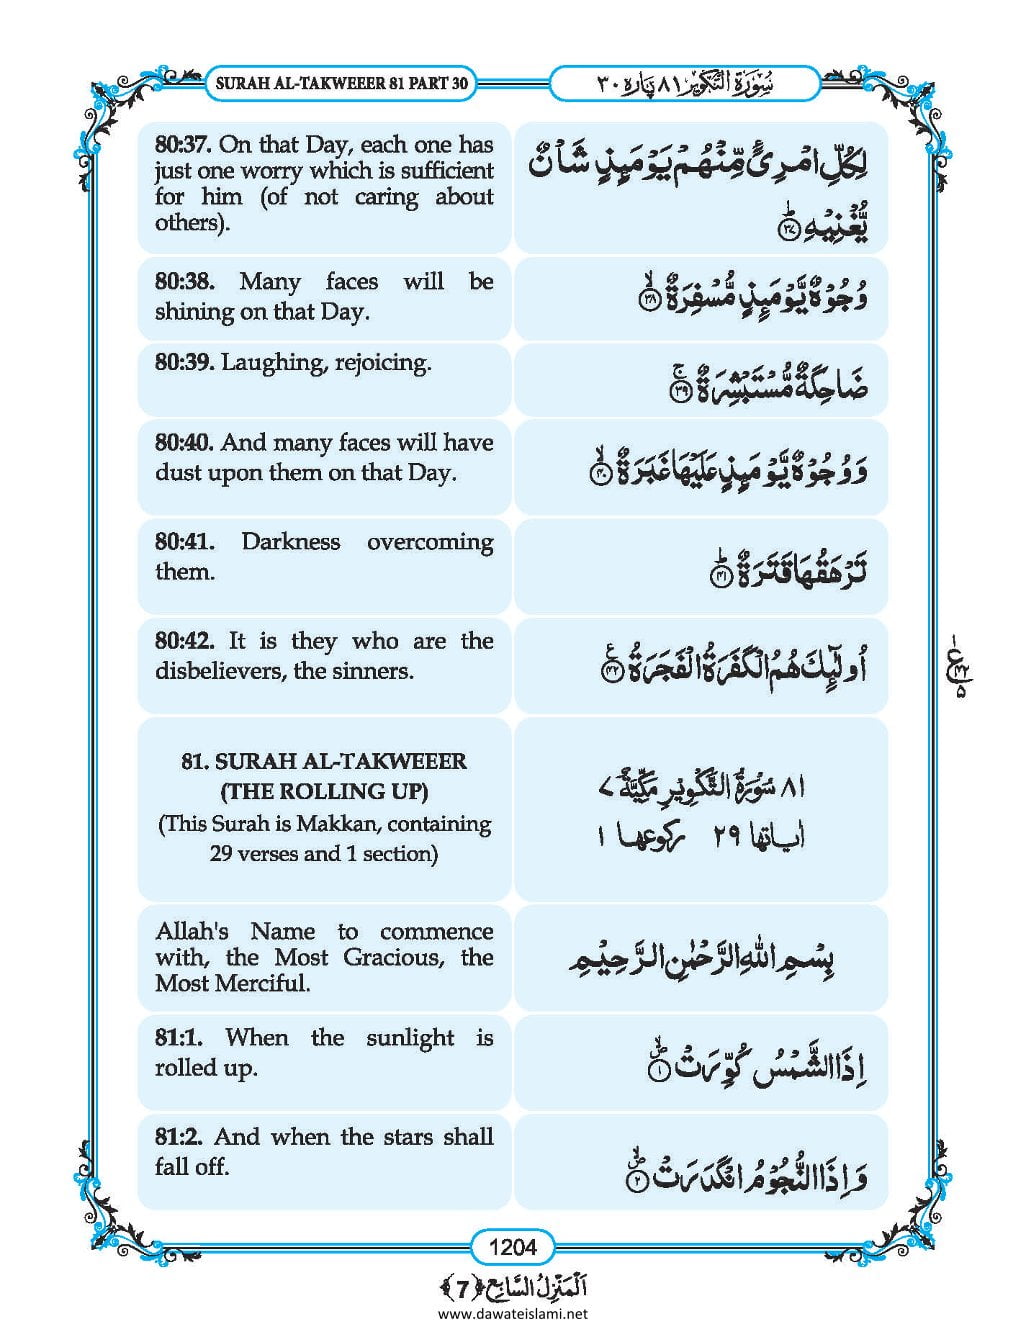 SURAH AL-TAKWEEER 81 PART 30
سُوْرَةُ التَّكْوِيْر ٨١ پَارہ ٣٠
80:37. On that Day, each one has
just one worry which is sufficient
for him (of not caring about
others).
لِكُلِّ امْرِئٍ مِّنْهُمْ يَوْمَىِٕذٍ شَاْنٌ
یُّغْنِیْهِؕ ﴿۳۷﴾
80:38. Many faces will be
shining on that Day.
وُجُوْهٌ یَّوْمَىِٕذٍ مُّسْفِرَةٌۙ ﴿۳۸﴾
80:39. Laughing, rejoicing.
ضَاحِكَةٌ مُّسْتَبْشِرَةٌۚ ﴿۳۹﴾
80:40. And many faces will have
dust upon them on that Day.
وَ وُجُوْهٌ یَّوْمَىِٕذٍ عَلَیْهَا غَبَرَةٌۙ ﴿۴۰﴾
80:41. Darkness overcoming
them.
تَرْهَقُهَا قَتَرَةٌؕ ﴿۴۱﴾
80:42. It is they who are the
disbelievers, the sinners.
اُولٰٓىِٕكَ هُمُ الْكَفَرَةُ الْفَجَرَةُ۠ ﴿۴۲﴾
ع
۴۲
۵
81. SURAH AL-TAKWEEER
(THE ROLLING UP)
(This Surah is Makkan, containing
29 verses and 1 section)
٨١ سُوْرَةُ التَّكْوِيْرِ مَكِّيَّةٌ ٧
اٰیاتها ٢٩ رکوعها ١
Allah's Name to commence
with, the Most Gracious, the
Most Merciful.
بِسْمِ اللّٰهِ الرَّحْمٰنِ الرَّحِیْمِ
81:1. When the sunlight is
rolled up.
اِذَا الشَّمْسُ كُوِّرَتْﭪ ﴿۱﴾
81:2. And when the stars shall
fall off.
وَ اِذَا النُّجُوْمُ انْكَدَرَتْﭪ ﴿۲﴾
1204
اَلْمَنْزِلُ السَّابِع ﴿7﴾
www.dawateislami.net